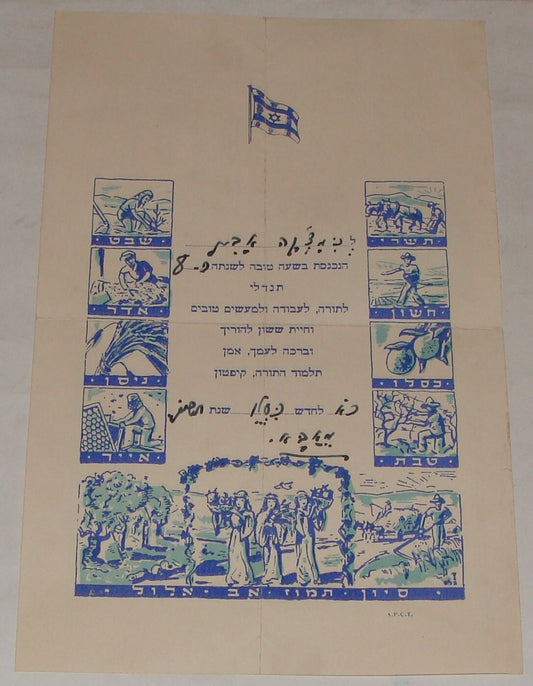 שבט
אדר
ניסן
אייר
תשרי
חשון
כסלו
טבת
הנכנסת בשעה טובה לשנתה ה-8
תגדלי
לתורה, לעבודה ולמעשים טובים
וחיית ששון להוריך
וברכה לעמך, אמן
תלמוד התורה, קיפטון
כא לחדש כסלו שנת
מאבא.
סיון תמוז אב אלול
A.P.C.T.